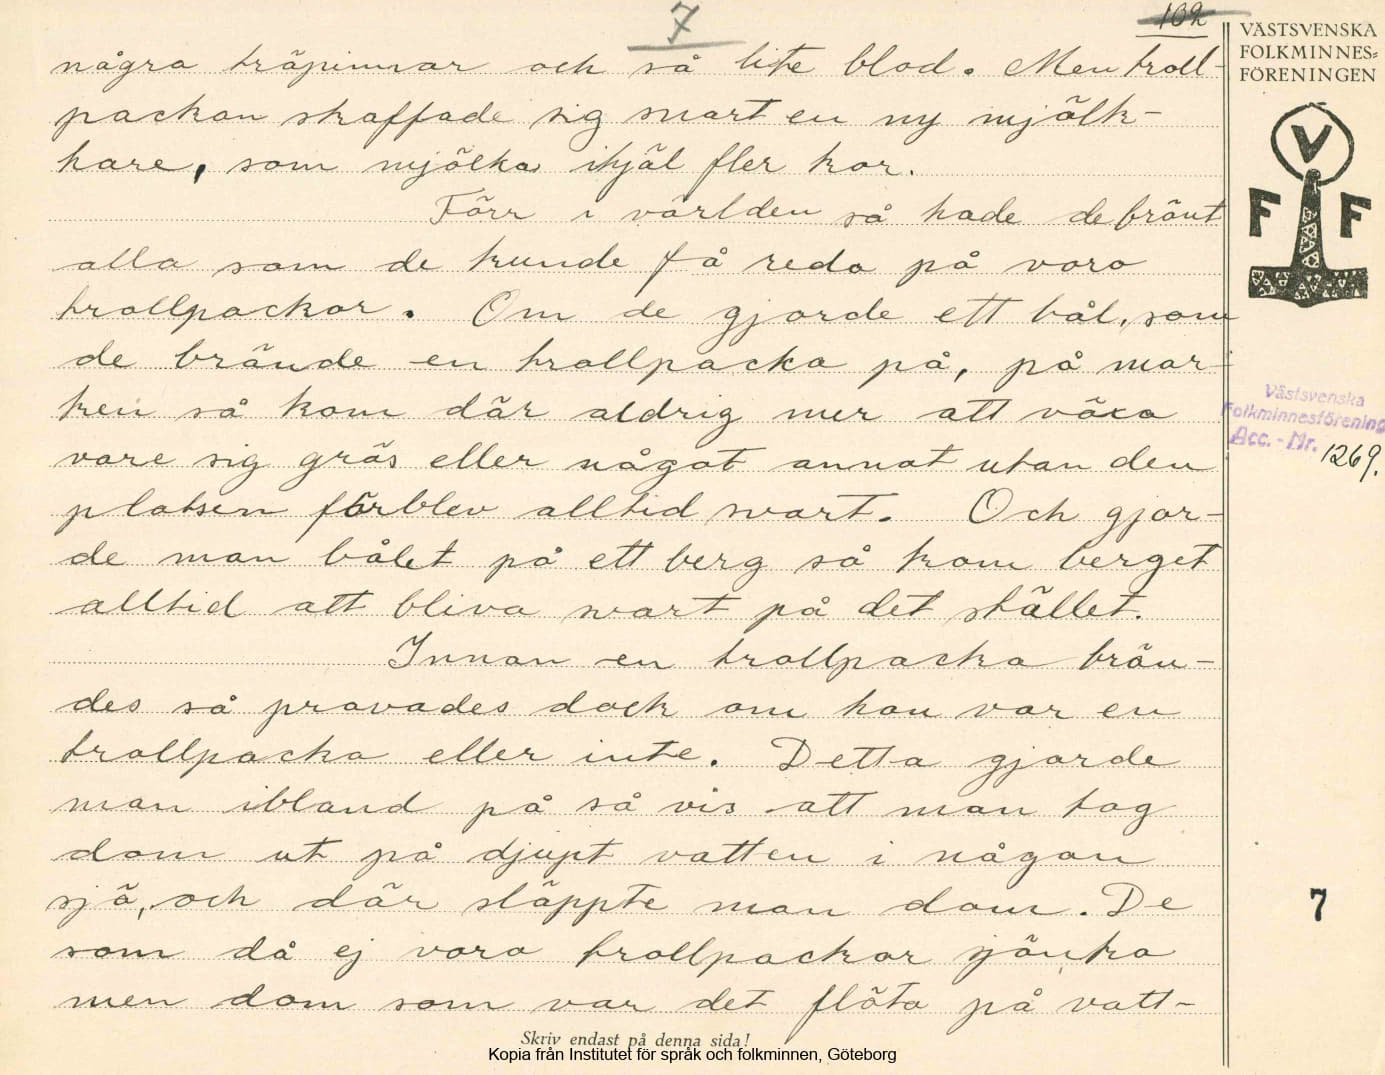 7
102
VÄSTSVENSKA
FOLKMINNES=
FÖRENINGEN
V
F F
några träpinnar och så lite blod. Men troll-
packan skaffade sig snart en ny mjölk-
hare, som mjölka ihjäl fler kor.
Förr i världen så hade de bränt
alla som de kunde få reda på voro
trollpackor. Om de gjorde ett bål, som
de brände en trollpacka på, på mar-
ken så kom där aldrig mer att växa
vare sig gräs eller något annat utan den
platsen förblev alltid svart. Och gjor-
de man bålet på ett berg så kom berget
alltid att bliva svart på det stället.
Innan en trollpacka brän-
des så provades dock om hon var en
trollpacka eller inte. Detta gjorde
man ibland på så vis att man tog
dom ut på djupt vatten i någon
sjö, och där släppte man dom. De
som då ej voro trollpackor sjönko
men dom som var det flöto på vatt-
Västsvenska
Folkminnesförening
Acc.-Nr. 1269.
7
Skriv endast på denna sida!
Kopia från Institutet för språk och folkminnen, Göteborg